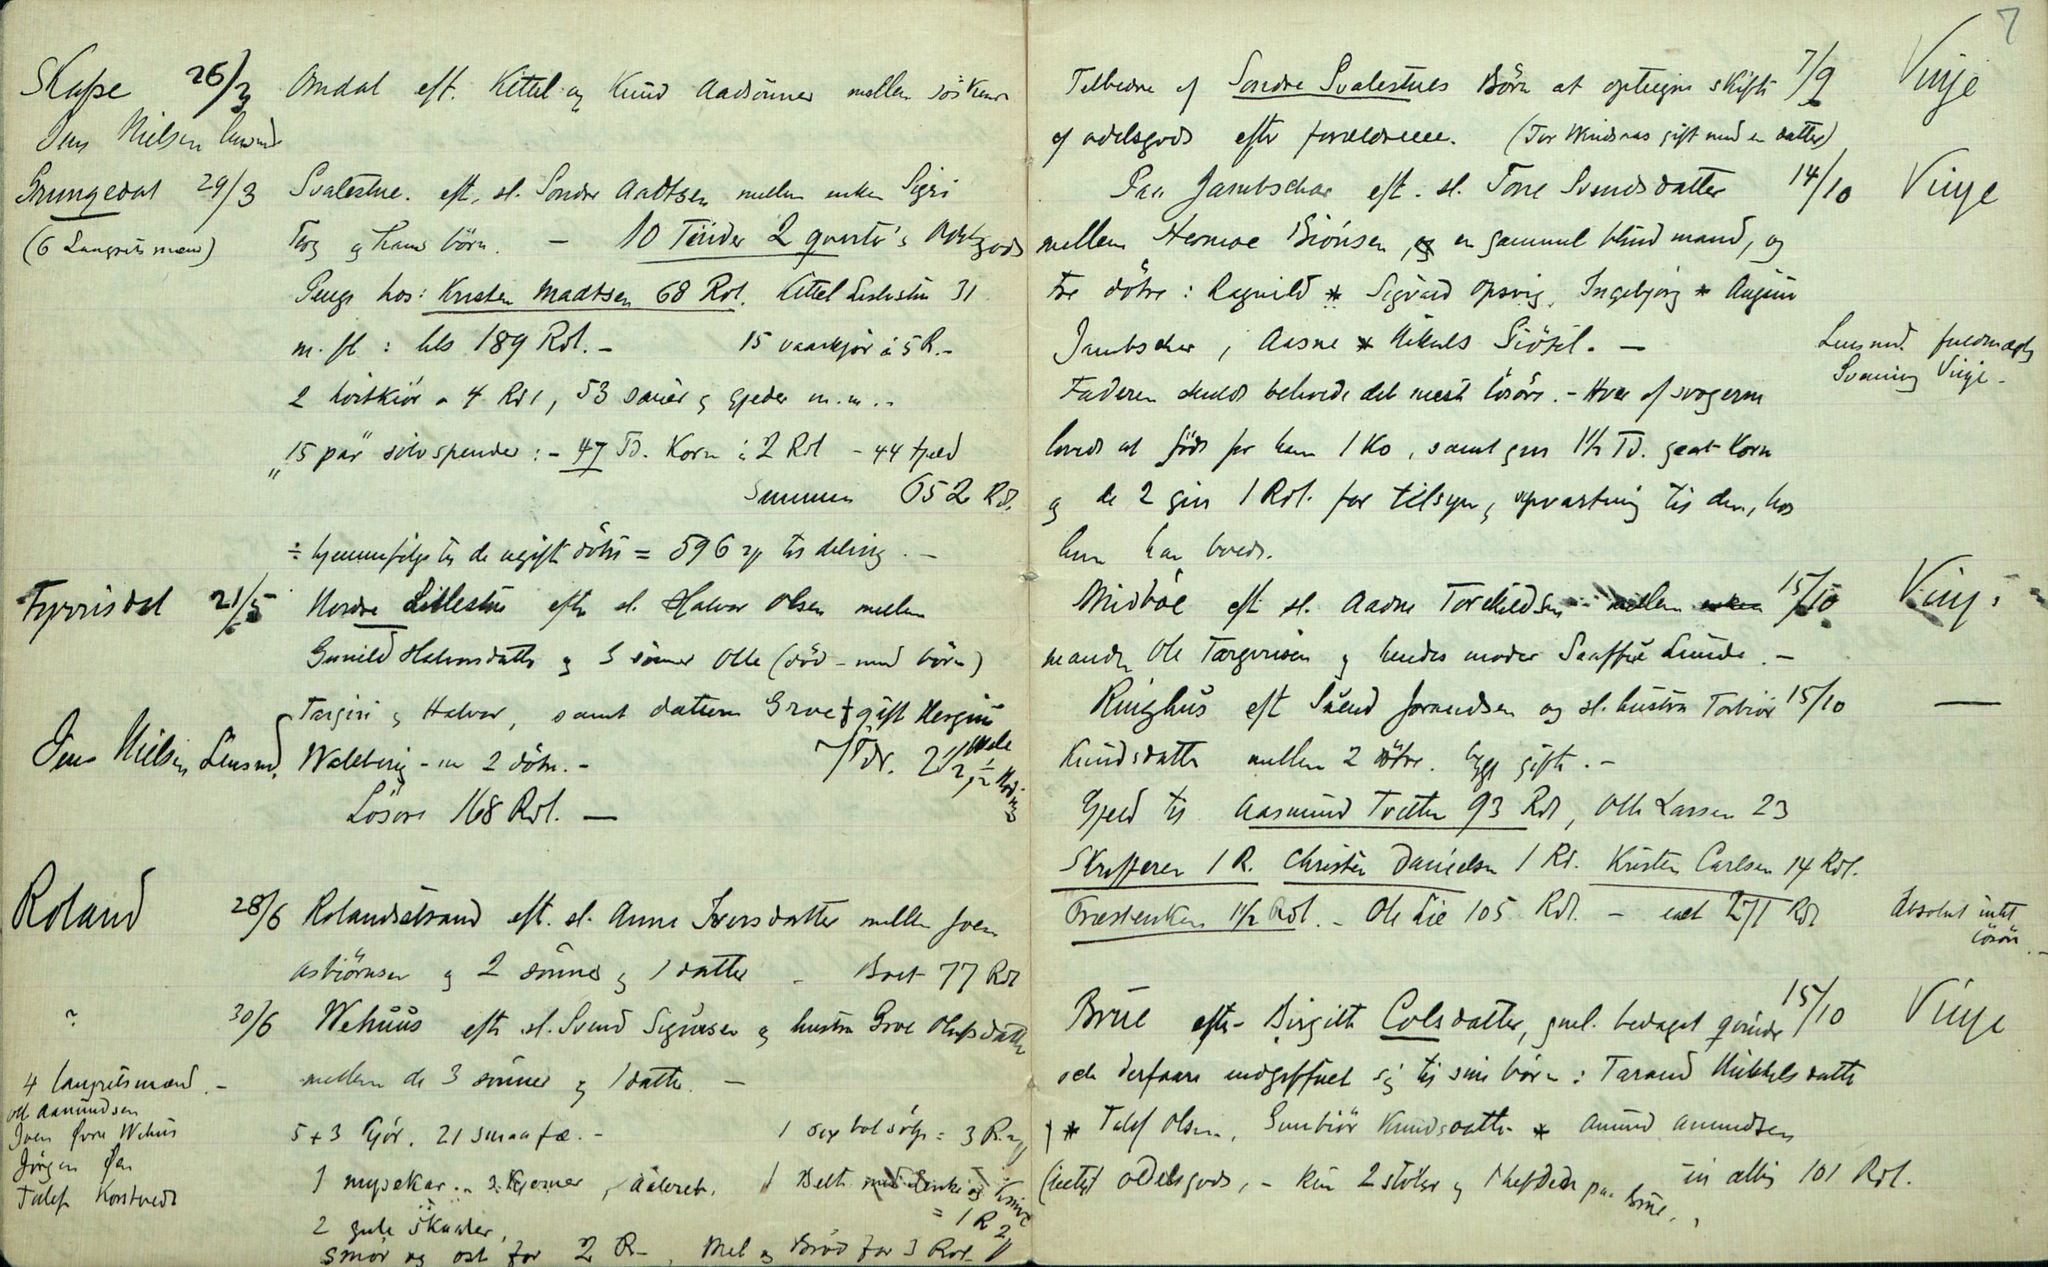 Skafse 26/3 Omdal eft. Kittel og Knud Aadsönner mellem söskend
Jens Nielsen lensmd
Grungedal 29/3 Svalestue. eft. sl. Sondre Aadtsen mellem enken Sigri
(6 Laugrets mænd) Torg og hans börn. - 10 Tönder 2 quarter's Odelsgods
Penge hos: Kristen Madtsen 68 Rdl. Kittel Leslestu 31
m. fl: tils 189 Rdl. - 15 vaarkjör à 5 R. -
2 höstkiör a 4 Rdl, 53 sauer og gjeder m.m. -
"15 par" sölvspender: - 47 Td. Korn à 2 Rdl - 44 fjeld
Summen 652 Rd.
÷ hjemmefölge til de ugifte dötre = 596 og til deling. -
Fyrrisdal 21/5 Nordre Lillestue efter sl. Halvor Olsen mellem
Gunild Halvorsdatter og 3 sönner Olle (död - med börn)
Targiri og Halvor, samt datteren Groe gift Hergius
Jens Nielsen Lensmd. Waleberig - en 2 dötre. - 7 Tdr. 2 1/2
Lösöre 168 Rdl. —
Roland 28/6 Rolandsstrand eft. sl. Anne Iversdatter mellem Joen
Asbiörnsen og 2 sönner og 1 datter - Boet 77 Rdl
? 30/6 Wehuus efter sl. Svend Sigursen og hustru Groe Olufsdatter
4 laugretsmænd. - mellem de 3 sönner og 1 datter. —
Ole Aamundsen
Joen Övre Wehus 5 + 3 Kjör. 21 smaa fæ. - 1 sex bol sölje = 3 R.
Jörgen Öen
Talef Korstvedt 1 mysekar .. 2 Kjerner, 1 Belt med lenke og kniv
= 1 R 2
2 gule skaaler,
smör og ost for 2 R -, Mel og Bröd for 3 Rdl.

7
Telbedne af Sondre Svalestues Börn at optegne skifte 7/9 Vinje
af odelsgods efter forældrene. (Tor Windsaas gift med en datter)
Paa Jambschar eft. sl. Tone Svendsdatter 14/10 Vinje
mellem Hermoe Biönsen, en gammel blind mand, og
tre dötre: Ragnild * Sigurd Opsvig, Ingebjörg * Augun
Jambschar, Aasne * Mikkels Siösil. — Lensmd. fuldmægtig
Svening Vinje -
Faderen skulde beholde det meste lösöre. - Hver af svogerne
lovede at föde for ham 1 Ko, samt give 1 1/2 Td. godt Korn
og de 2 give 1 Rdl. for tilsyn og opvartning til den, hos
hvem han boede.
Midböe eft sl. Aadne Torchildsen mellem 15/10 Vinje
manden Ole Targerisen og hendes moder Saaffue Lunde. -
Ringhus eft Svend Jorandsen og sl. hustru Torbiör 15/10 —
Knudsdatter mellem 2 dötre. begge gifte. -
Gjeld til Aasmund Tveiten 93 Rdl, Olle Larsen 23
Skrifveren 1 R. Christen Danielsen 1 Rd. Kristen Carlsen 14 Rdl.
Præstenken 1 1/2 Rdl. - Ole Lie 105 Rdl. - ialt 271 Rdl Absolut intet
lösöre. -
Brue efter Birgitte Colsdatter, gml. bedaget qvinde 15/10 Vinje
och derfaare indgifvet sig til sine börn: Tarand Mikkelsdatter
* Talef Olsen, Gunbiör Knudsdatter * Amund Amundsen
odelsgods, - Kun 2 stöler og 1 paa Brue. in alles 101 Rdl.